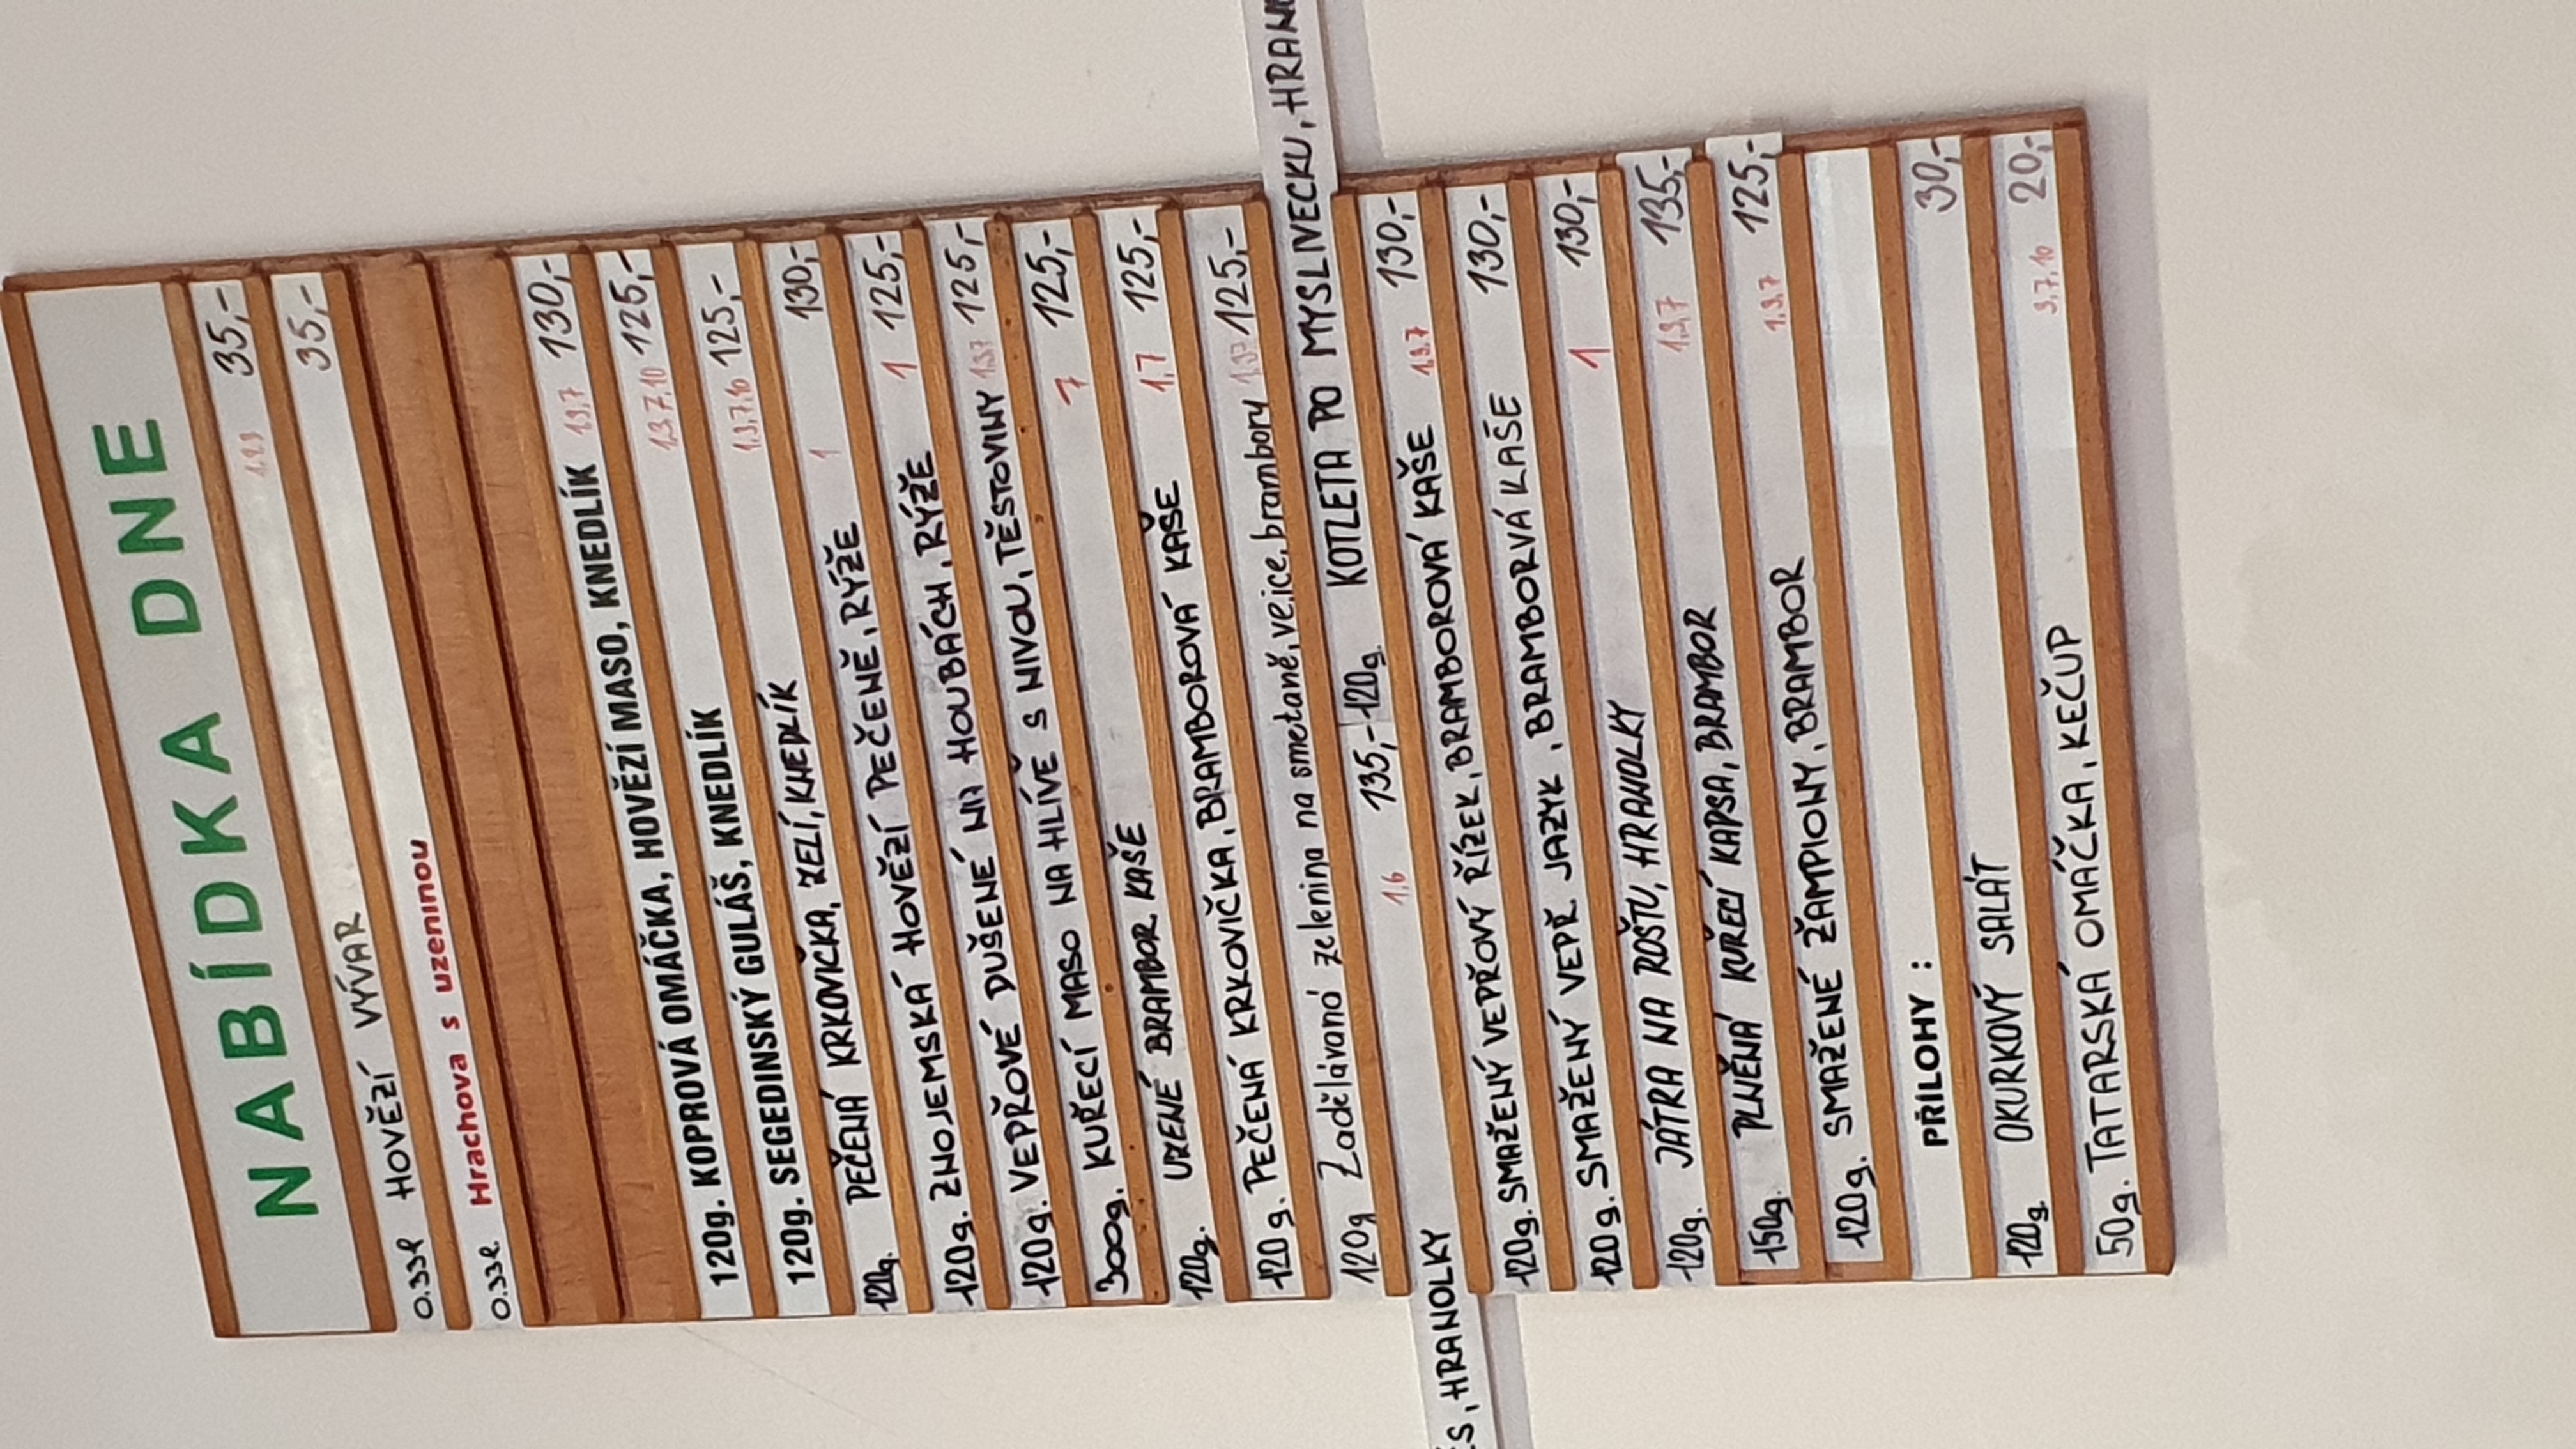 NABÍDKA DNE
0.33l HOVĚZÍ VÝVAR 1.2.9 35,-
0.33l. Hrachova s uzeninou 35,-
120g. KOPROVÁ OMÁČKA, HOVĚZÍ MASO, KNEDLÍK 1.3.7 130,-
120g. SEGEDINSKÝ GULÁŠ, KNEDLÍK 1.3.7.10 125,-
120g. PEČENÁ KRKOVIČKA, ZELÍ, KNEDLÍK 1.3.7.10 125,-
120g. ZNOJEMSKÁ HOVĚZÍ PEČENĚ, RÝŽE 1 130,-
120g. VEPŘOVÉ DUŠENÉ NA HOUBÁCH, RÝŽE 1 125,-
300g. KUŘECÍ MASO NA HLÍVĚ S NIVOU, TĚSTOVINY 1.3.7 125,-
120g. UZENÉ BRAMBOR KAŠE 7 125,-
120g. PEČENÁ KRKOVIČKA, BRAMBOROVÁ KAŠE 1,7 125,-
120g Zadělávaná zelenina na smetaně, vejce, brambory 1.3.7 125,-
HRANOLKY 1,6 135,- 120g. KOTLETA PO MYSLIVECKU, HRANO
120g. SMAŽENÝ VEPŘOVÝ ŘÍZEK, BRAMBOROVÁ KAŠE 1.3.7 130,-
120g. SMAŽENÝ VEPŘ JAZYK, BRAMBORVÁ KAŠE 130,-
120g. JÁTRA NA ROŠTU, HRANOLKY 1 130,-
150g. PLNĚNÁ KUŘECÍ KAPSA, BRAMBOR 1.3.7 135,-
120g. SMAŽENÉ ŽAMPIONY, BRAMBOR 1.3.7 125,-
PŘÍLOHY :
120g. OKURKOVÝ SALÁT 30,-
50g. TATARSKÁ OMÁČKA, KEČUP 3.7.10 20,-